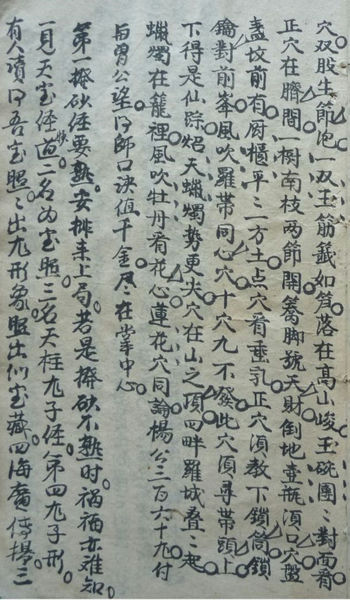 穴双股生節泡一双玉筋籤如笈落在髙山峻玉碗團〻對面看
正穴在臍間一樹南枝两節開篱脚號天財倒地壺瓶湏口穴盤
盖坟前有厨櫃平〻一方土点穴看垂乳正穴湏教下鎖筒鎖
鑰對前峯風吹羅帶同心穴十穴九不發此穴湏尋帶頭上
下得是仙踪炤天蠟燭勢更尖穴在山之頂四畔羅城叠〻起
蠟燭在籠裡風吹牡丹看花心蓮花穴同論楊公三百六十九付
与曾公望得師口决值千金尽在掌中心
第一撥砍經要熟安排来上局若是撥砍不熟时祸福亦难知
一見天宝經快道二名为宝照三名天柱九子經第四九子形
有人讀得吾宝照〻出九形象照出仙宝藏四海廣传揚三